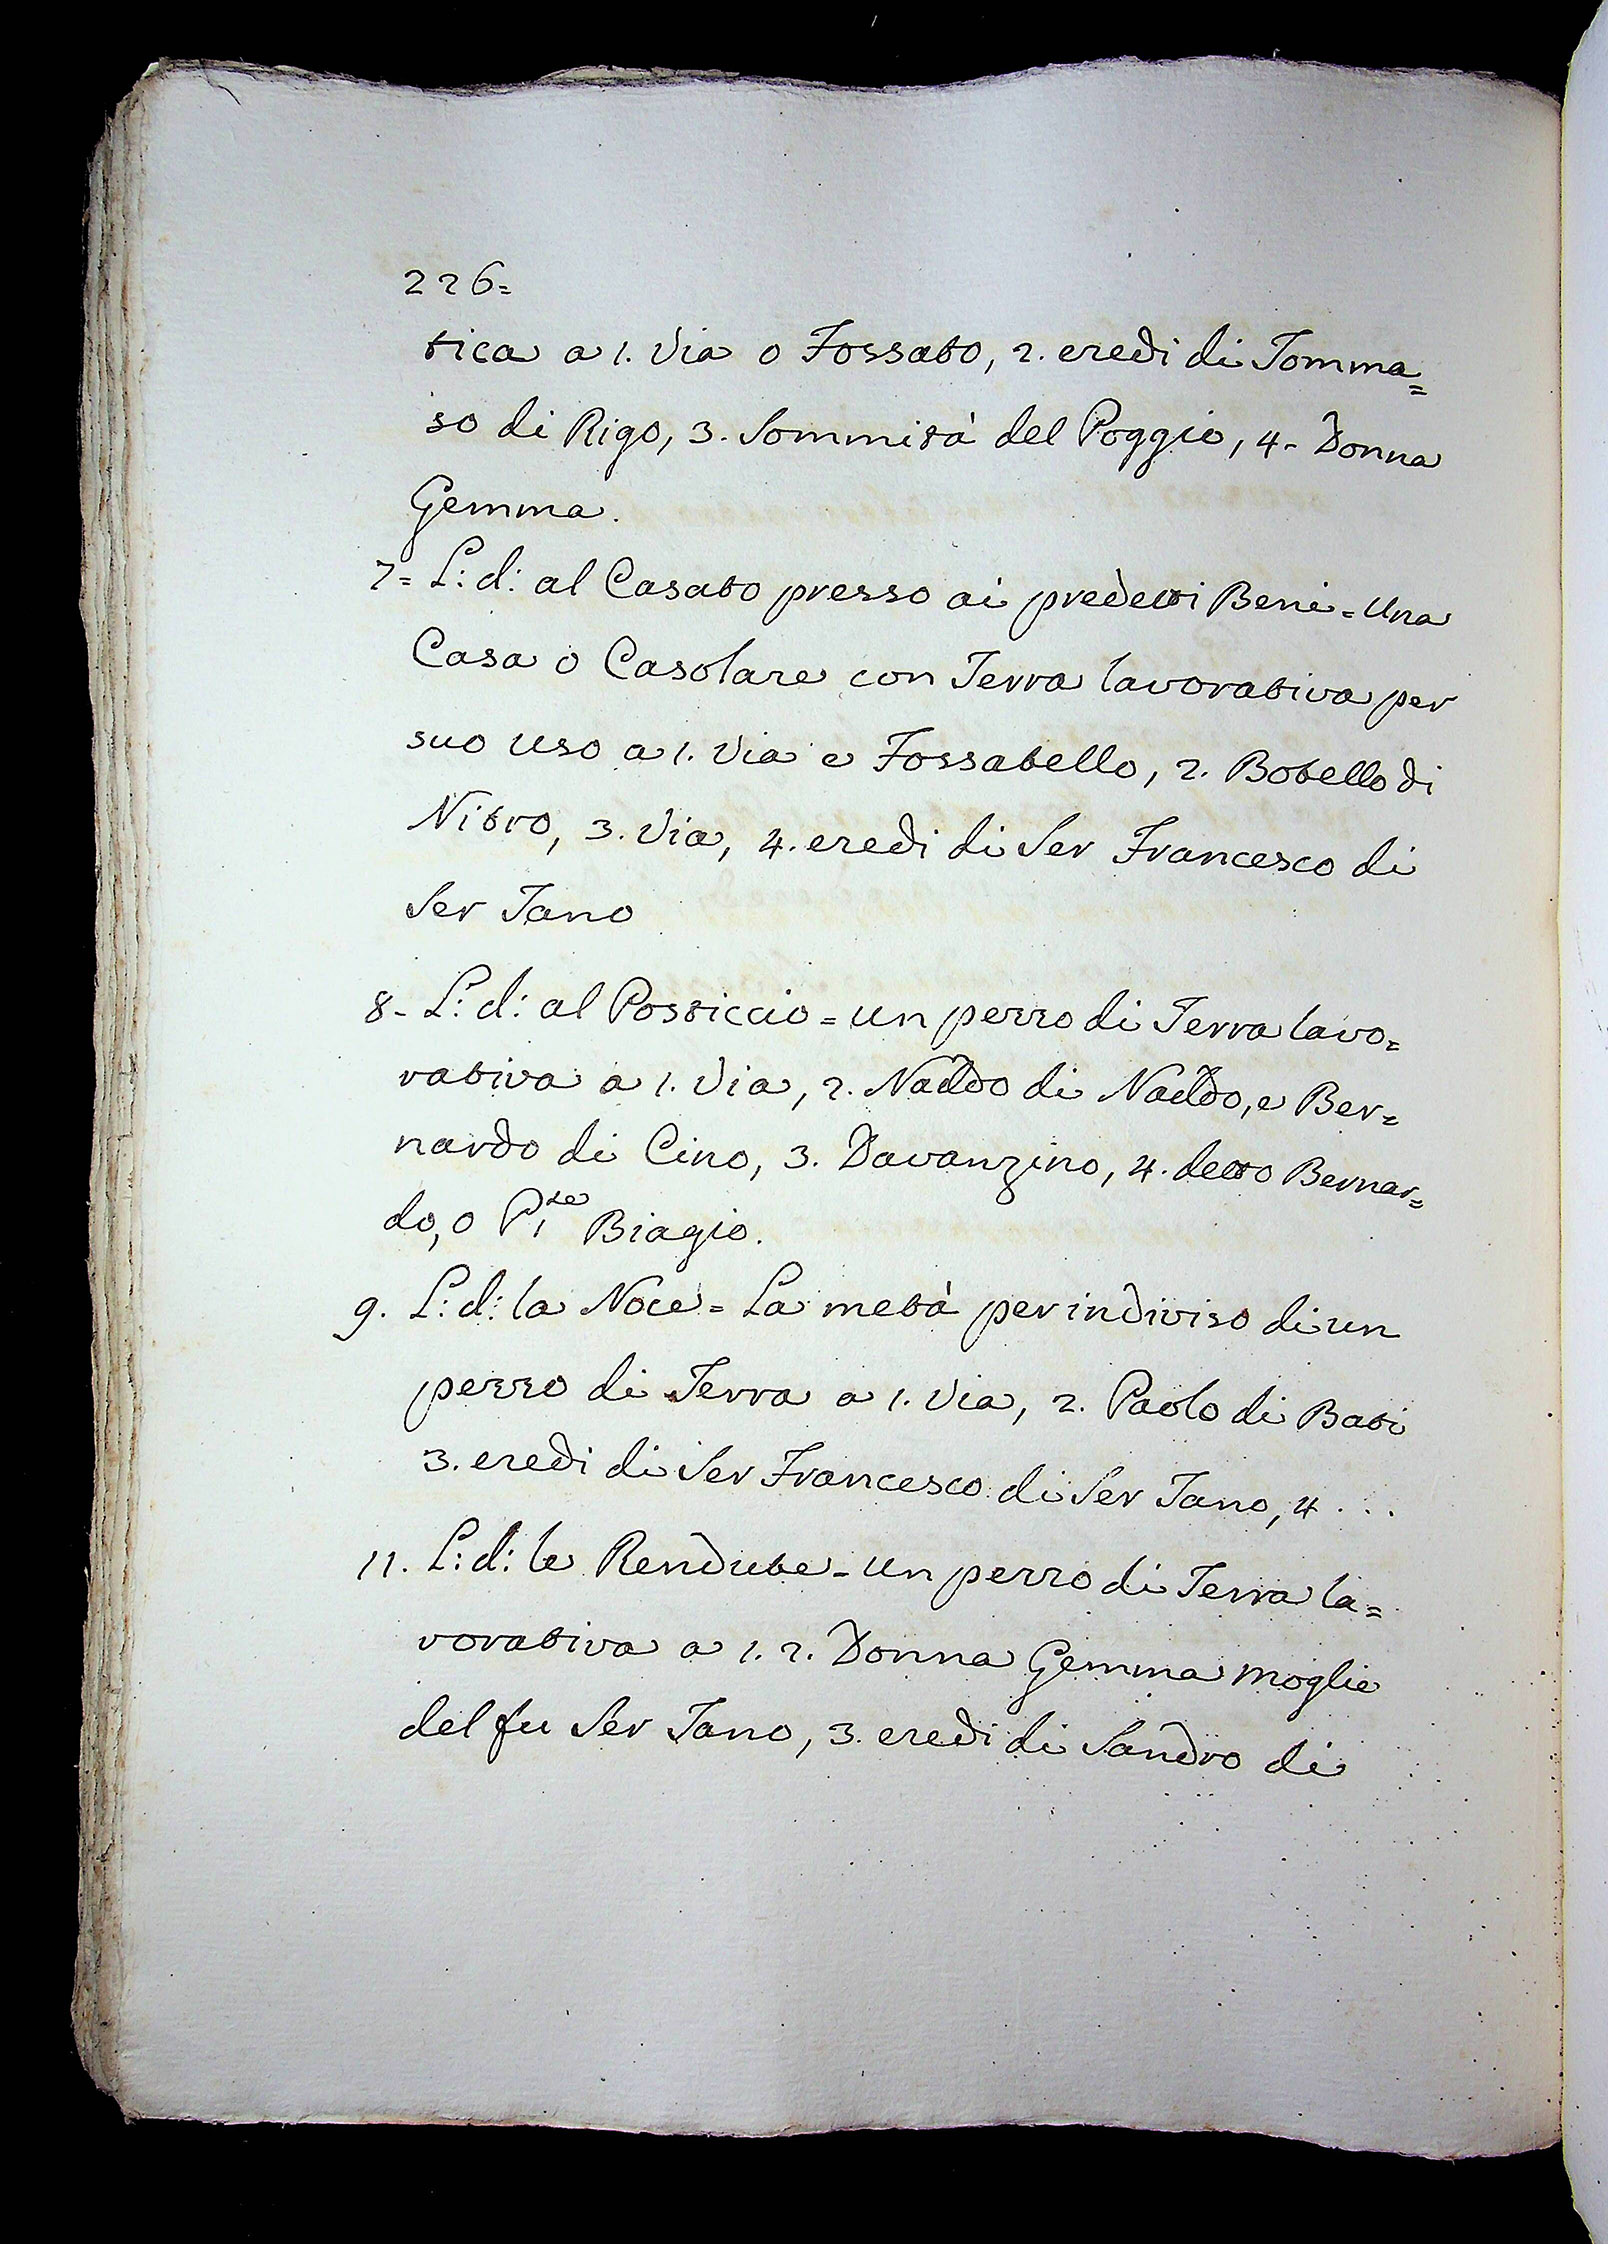 226=
tica a 1. Via o Fossato, 2. eredi di Tomma=
so di Rigo, 3. Sommità del Poggio, 4. Donna
Gemma.
7= L: d: al Casato presso ai predetti Beni = Una
Casa o Casolare con Terra lavorativa per
suo uso a 1. Via e Fossatello, 2. Botello di
Nitro, 3. Via, 4. eredi di Ser Francesco di
Ser Tano
8- L: d: al Posticcio = un pezzo di Terra lavo=
rativa a 1. Via, 2. Naddo di Naddo, e Ber=
nardo di Cino, 3. Davanzino, 4. detto Bernar=
do, o Pte Biagio.
9. L: d: la Noce = La metà per indiviso di un
pezzo di Terra a 1. Via, 2. Paolo di Bati
3. eredi di Ser Francesco di Ser Tano, 4 ...
11. L: d: le Rendute - Un pezzo di Terra la=
vorativa a 1. 2. Donna Gemma moglie
del fu Ser Tano, 3. eredi di Sandro di